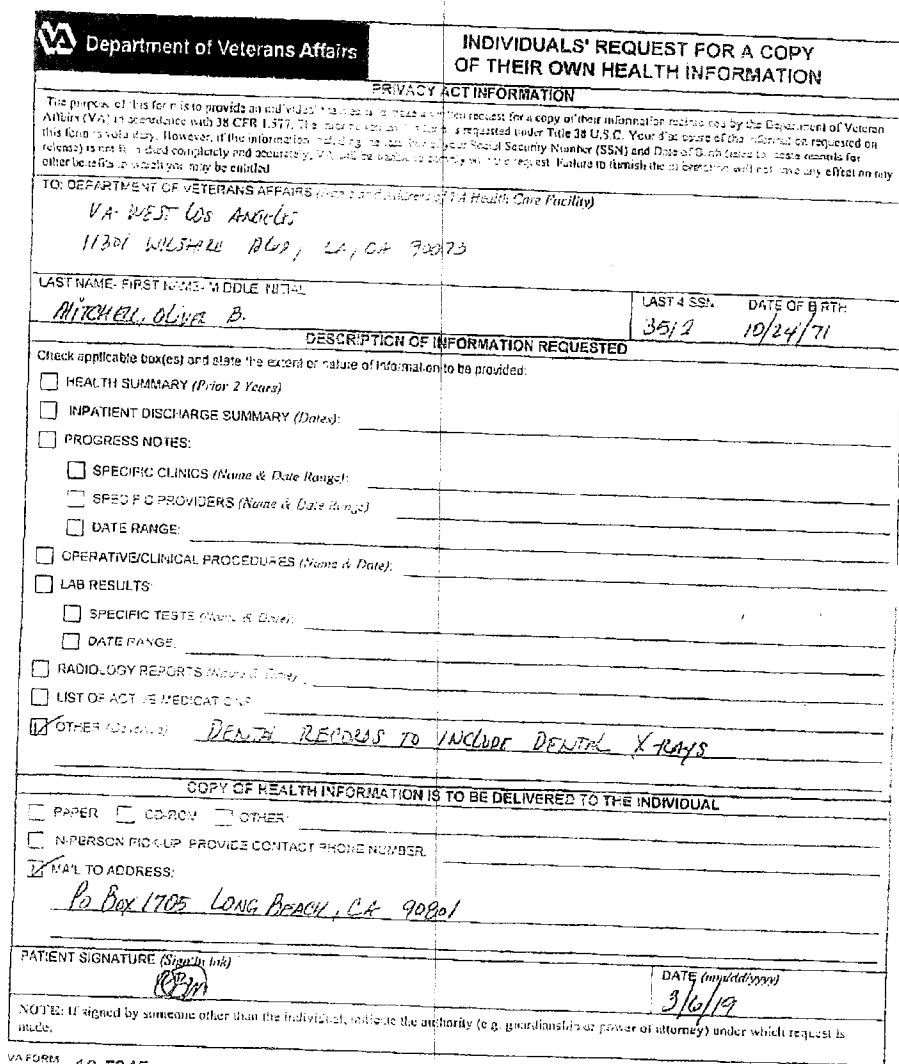 VA Department of Veterans Affairs
INDIVIDUALS' REQUEST FOR A COPY
OF THEIR OWN HEALTH INFORMATION
PRIVACY ACT INFORMATION
The purpose of this form is to provide an individual to request for a copy of their information by the Department of Veteran
Affairs (VA) in accordance with 38 CFR 1.577. is requested under Title 38 U.S.C. Your disclosure of the information requested on
this form is voluntary. However, if the information including Social Security Number (SSN) and Date of Birth records for
release) is not furnished completely and accurately, VA will be request. Failure to furnish the information will not have any effect on any
other benefits to which you may be entitled
TO: DEPARTMENT OF VETERANS AFFAIRS (Name and Address of VA Health Care Facility)
VA- WEST LOS ANGELES
11301 WILSHIRE BLVD, LA, CA 90073
LAST NAME- FIRST NAME- MIDDLE INITIAL
LAST 4 SSN
DATE OF BIRTH
MITCHELL, OLIVER B.
3512
10/24/71
DESCRIPTION OF INFORMATION REQUESTED
Check applicable box(es) and state the extent or nature of information to be provided:
HEALTH SUMMARY (Prior 2 Years)
INPATIENT DISCHARGE SUMMARY (Dates):
PROGRESS NOTES:
SPECIFIC CLINICS (Name & Date Range):
SPECIFIC PROVIDERS (Name & Date Range)
DATE RANGE:
OPERATIVE/CLINICAL PROCEDURES (Name & Date):
LAB RESULTS:
SPECIFIC TESTS (Name & Date):
DATE RANGE:
RADIOLOGY REPORTS (Name & Date)
LIST OF ACTIVE MEDICATIONS
OTHER DENTAL RECORDS TO INCLUDE DENTAL X-RAYS
COPY OF HEALTH INFORMATION IS TO BE DELIVERED TO THE INDIVIDUAL
PAPER CD-ROM OTHER:
IN-PERSON PICK-UP, PROVIDE CONTACT PHONE NUMBER:
MAIL TO ADDRESS:
PO BOX 1705 LONG BEACH, CA 90801
PATIENT SIGNATURE (Sign in ink)
DATE (mm/dd/yyyy)
3/6/19
NOTE: If signed by someone other than the individual, indicate the authority (e.g. guardianship or power of attorney) under which request is
made.
VA FORM